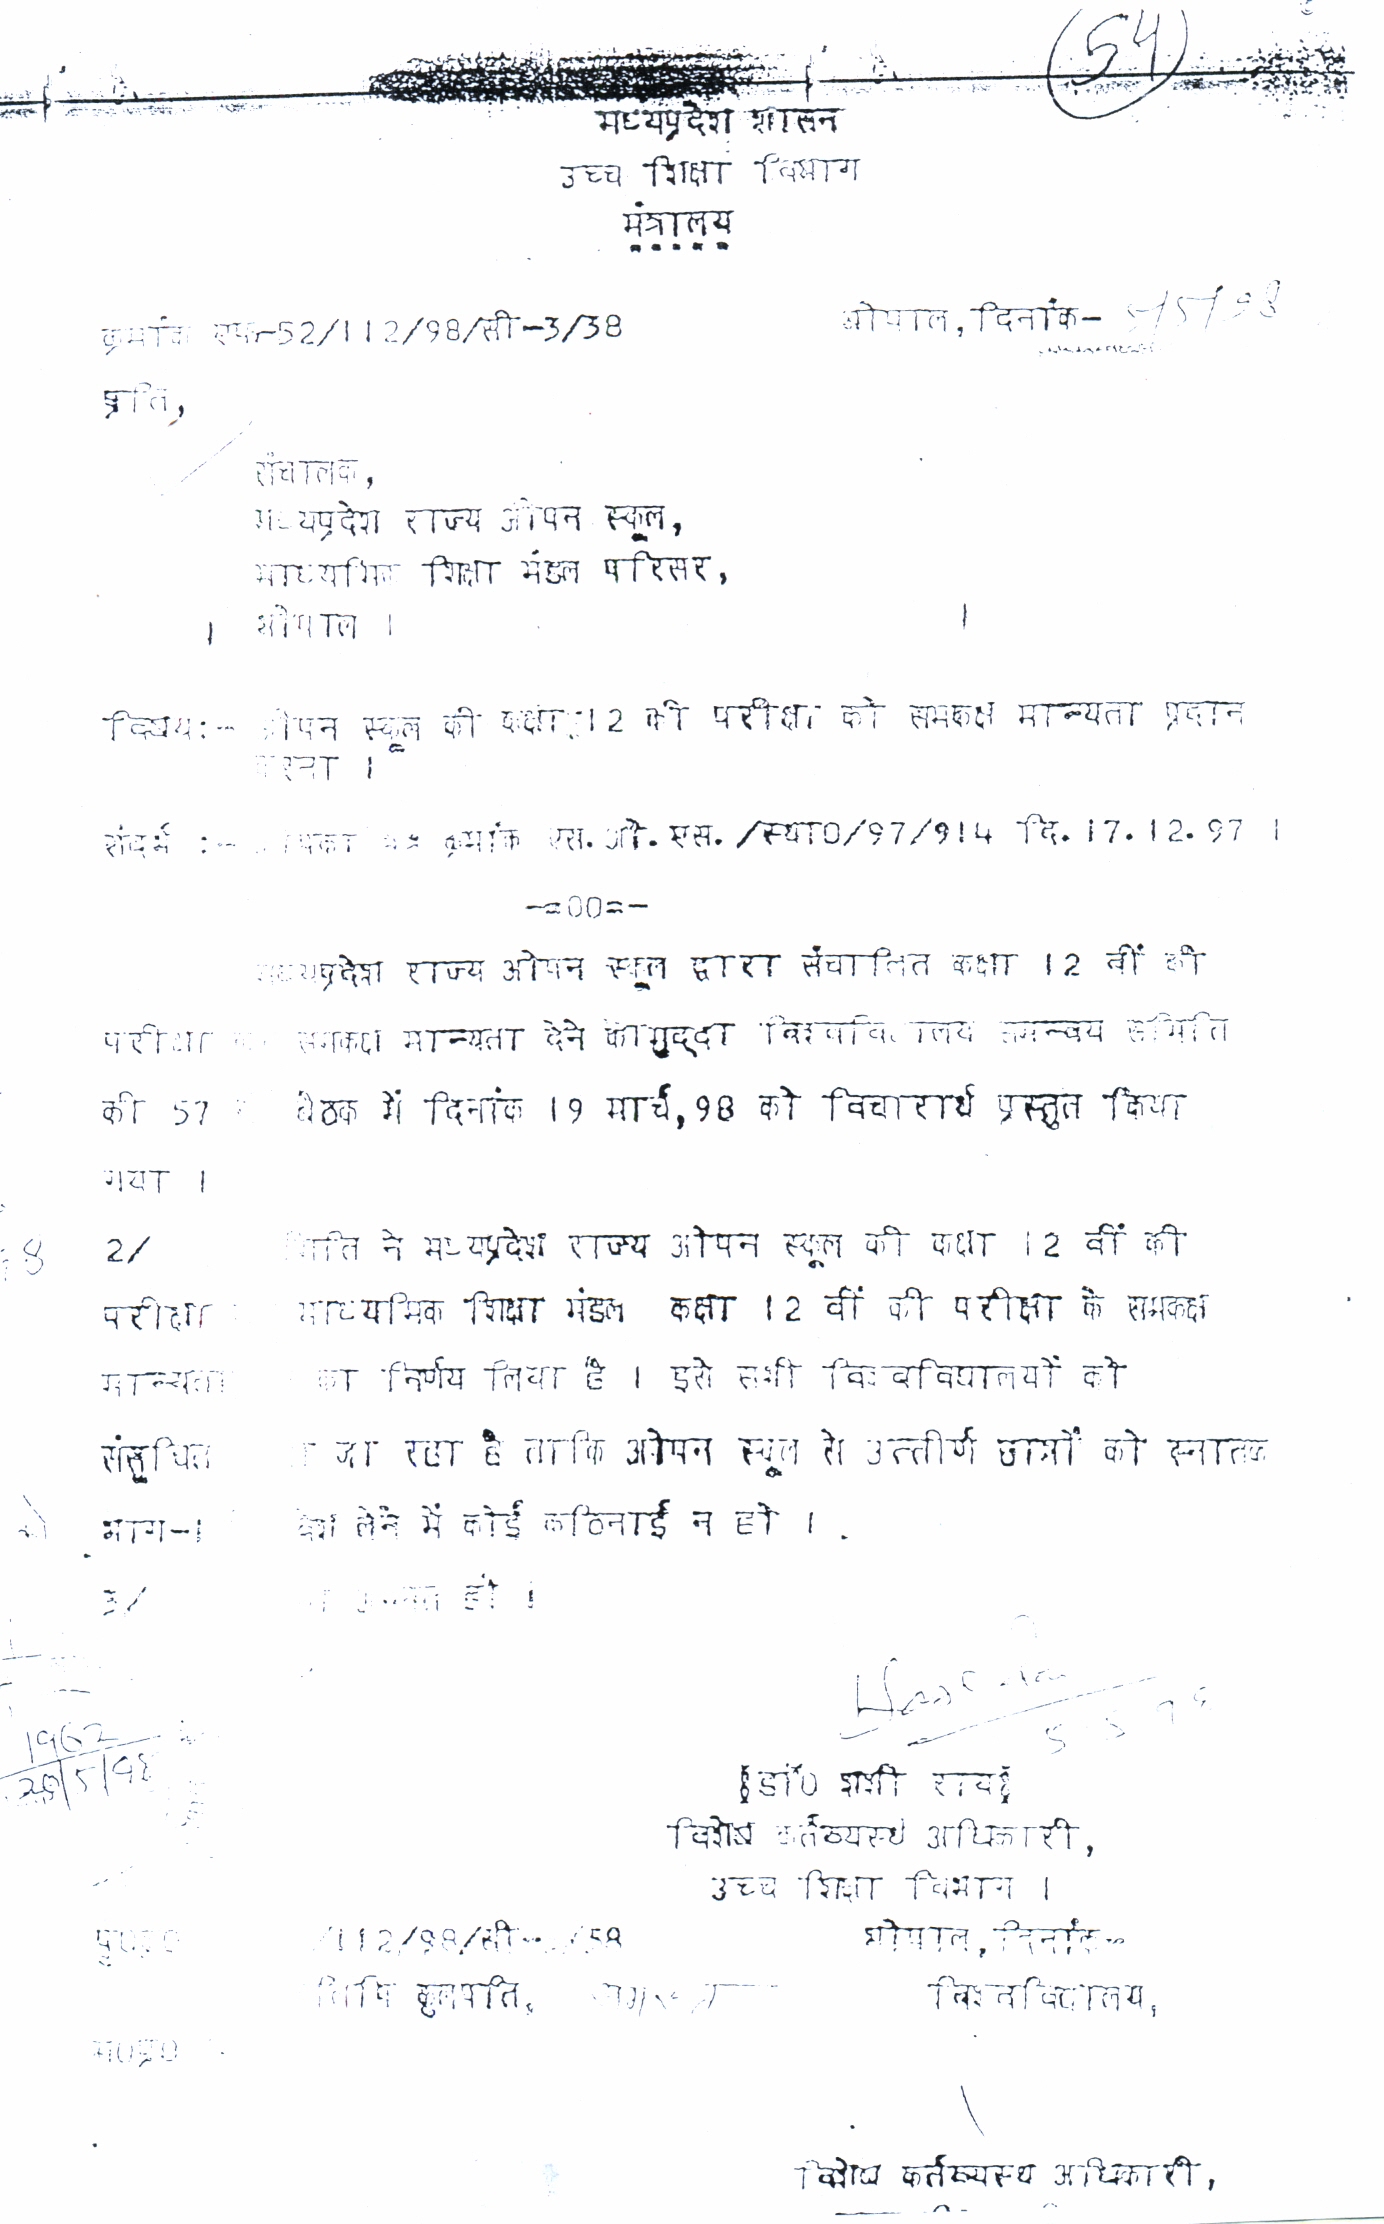 54
मध्यप्रदेश शासन
उच्च शिक्षा विभाग
मंत्रालय
क्रमांक एफ-52/112/98/सी-3/38 भोपाल, दिनांक- 5/5/98
प्रति,
संचालक,
मध्यप्रदेश राज्य ओपन स्कूल,
माध्यमिक शिक्षा मंडल परिसर,
भोपाल ।
विषय:- ओपन स्कूल की कक्षा 12 की परीक्षा को समकक्ष मान्यता प्रदान
करना ।
संदर्भ :- आपका पत्र क्रमांक एस.ओ.एस./स्था0/97/914 दि.17.12.97 ।
-=00=-
मध्यप्रदेश राज्य ओपन स्कूल द्वारा संचालित कक्षा 12 वीं की
परीक्षा समकक्ष मान्यता देने का मुद्दा विश्वविद्यालय समन्वय समिति
की 57 बैठक में दिनांक 19 मार्च,98 को विचारार्थ प्रस्तुत किया
गया ।
2/ मिति ने मध्यप्रदेश राज्य ओपन स्कूल की कक्षा 12 वीं की
परीक्षा माध्यमिक शिक्षा मंडल कक्षा 12 वीं की परीक्षा के समकक्ष
मान्यता का निर्णय लिया है । इसे सभी विश्वविद्यालयों को
संसूचित जा रहा है ताकि ओपन स्कूल से उत्तीर्ण छात्रों को स्नातक
भाग-1 वेश लेने में कोई कठिनाई न हो ।
3/ हो ।
5.5.98
1962
20/5/98
डॉ0 शशी राय
विशेष कर्तव्यस्थ अधिकारी,
उच्च शिक्षा विभाग ।
पृ0क्र0 /112/98/सी-3/58 भोपाल, दिनांक-
लिपि कुलपति, विश्वविद्यालय,
म0प्र0
विशेष कर्तव्यस्थ अधिकारी,